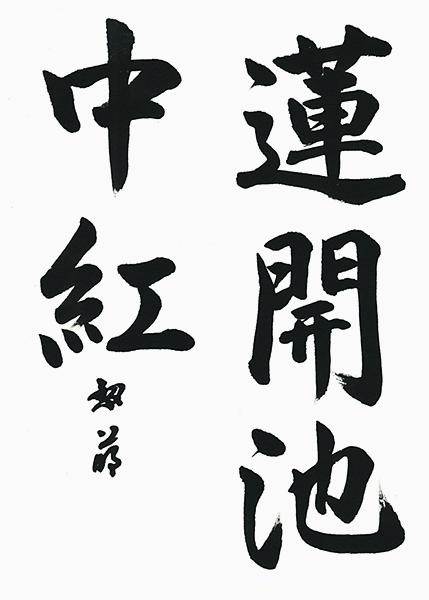 蓮開池
中紅